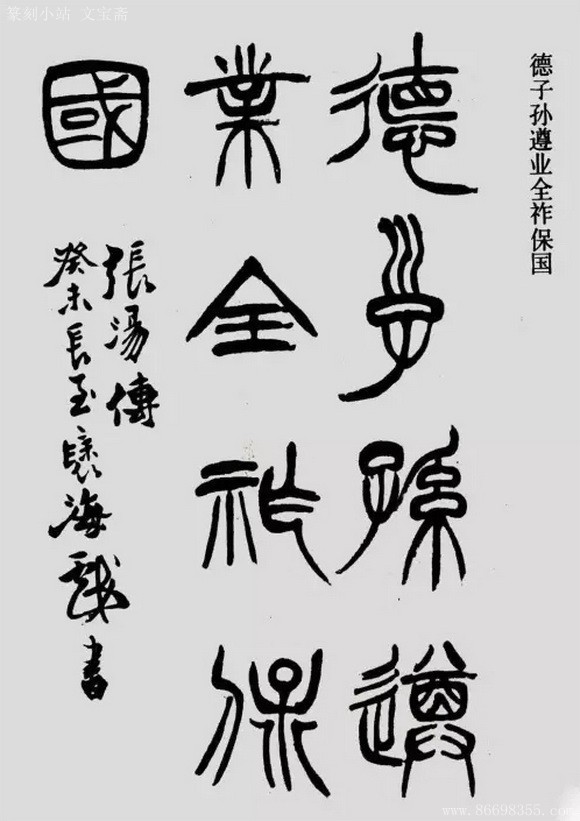 篆刻小站 文宝斋
德子孙遵业全祚保国
德子孫遵
業全祚保
國
張湯傳
癸未長至海戲書
www.86698355.com